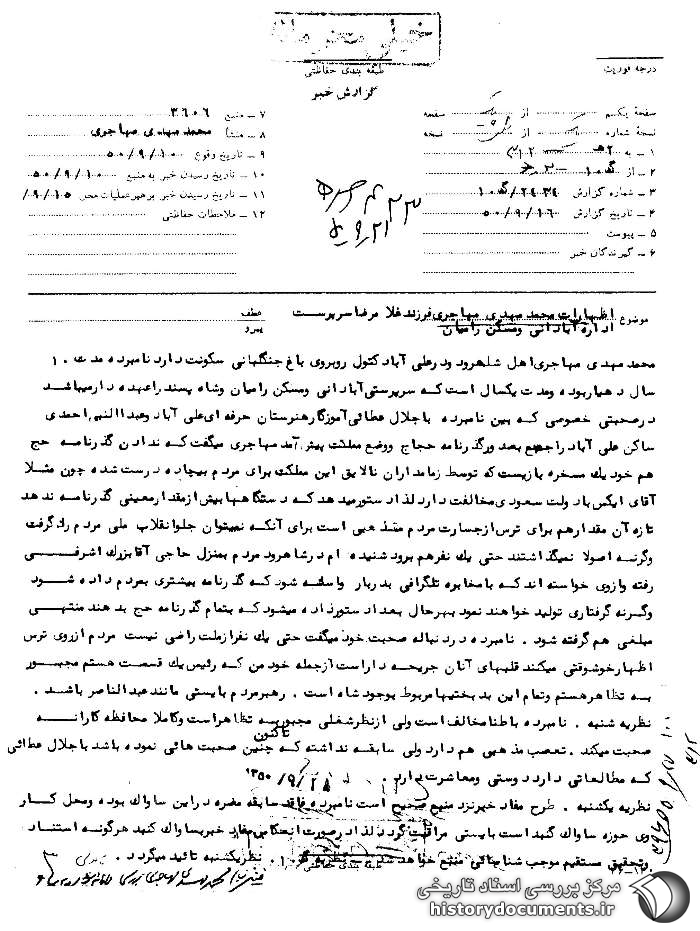 خیلی محرمانه
طبقه بندی حفاظتی
گزارش خبر
درجه فوریت
صفحه یکم از یک صفحه
نسخه شماره از نسخه
۱ ـ به
۲ ـ از ۱۰ﻫ
۳ ـ شماره گزارش
۴ ـ تاریخ گزارش ۵۰/۹/۱۶
۵ ـ پیوست
۶ ـ گیرندگان خبر
۷ ـ منبع ۳۶۰۶
۸ ـ منشأ محمد مهدی مهاجری
۹ ـ تاریخ وقوع ۵۰/۹/۱۰
۱۰ ـ تاریخ رسیدن خبر به منبع ۵۰/۹/۱۰
۱۱ ـ تاریخ رسیدن خبر به رهبر عملیات محل /۹/۱۵
۱۲ ـ ملاحظات حفاظتی
موضوع اظهارات محمد مهدی مهاجری فرزند غلا مرضا سرپرست
اداره آبادانی ومسکن رامیان
عطف
پیرو
محمد مهدی مهاجری اهل شاهرود ودرعلی آباد کتول روبروی باغ جنگلبانی سکونت دارد نامبرده مدت ۱۰
سال دهیار بوده ومدت یکسال است که سرپرستی آبادانی ومسکن رامیان وشاه پسند راعهده دار میباشد
درصحبتی خصوصی که بین نامبرده باجلال عطائی آموزگار هنرستان حرفه ای علی آباد وعبدالنبی احمدی
ساکن علی آباد راجع بصدور گذرنامه حجاج ووضع مملکت پیش آمد مهاجری میگفت که ندادن گذرنامه حج
هم خود یک مسخره بازیست که توسط زمامداران نالایق این مملکت برای مردم بیچاره درست شده چون مثلا
آقای ایکس باد ولت سعودی مخالفت دارد لذا دستور میدهد که دستگاهها بیش از مقدار معینی گذرنامه ندهد
تازه آن مقدار هم برای ترس از جسارت مردم متعذهبی است برای آنکه نمیتوان جلو انقلاب ملی مردم را گرفت
وگرنه اصولا نمیگذاشتند حتی یک نفر هم برود شنیده ام در شاهرود مردم بمنزل حاجی آقا بزرگ اشرفی
رفته وازوی خواسته اند که بامخابره تلگرافی بدربار واسطه شود که گذرنامه بیشتری بمردم داده شود
وگرنه گرفتاری تولید خواهند نمود بهرحال بعدا دستور داده میشود که بتمام گذرنامه حج بدهند منتهی
مبلغی هم گرفته شود . نامبرده در دنباله صحبت خود میگفت حتی یک نفر از ملت راضی نیست مردم ازروی ترس
اظهار خوشوقتی میکنند قلبهای آنان جریحه دار است ازجمله خود من که رئیس یک قسمت هستم مجبور
به تظاهر هستم وتمام این بدبختیها مربوط بوجود شاه است . رهبر مردم بایستی مانند عبدالناصر باشد .
نظریه شنبه . نامبرده باطنا مخالف است ولی ازنظر شغلی مجبور به تظاهر است وکاملا محافظه کارانه
صحبت میکند . تعصب مذهبی هم دارد ولی سابقه نداشته که تاکنون چنین صحبت هائی نموده باشد باجلال عطائی
که مطالعاتی دارد دوستی ومعاشرت دارد .
نظریه یکشنبه . طرح مفاد خبر نزد منبع صحیح است نامبرده فاقد سابقه مضره دراین ساواک بوده ومحل کار
وی حوزه ساواک گنبد است بایستی مراقبت گردد لذا درصورت انعکاس مفاد خبر بساواک گنبد هرگونه استناد
وتحقیق مستقیم موجب شناجائی منبع خواهد شد . نظریکشنبه تائید میگردد .
طبقه بندی حفاظتی
مرکز بررسی اسناد تاریخی
historydocuments.ir